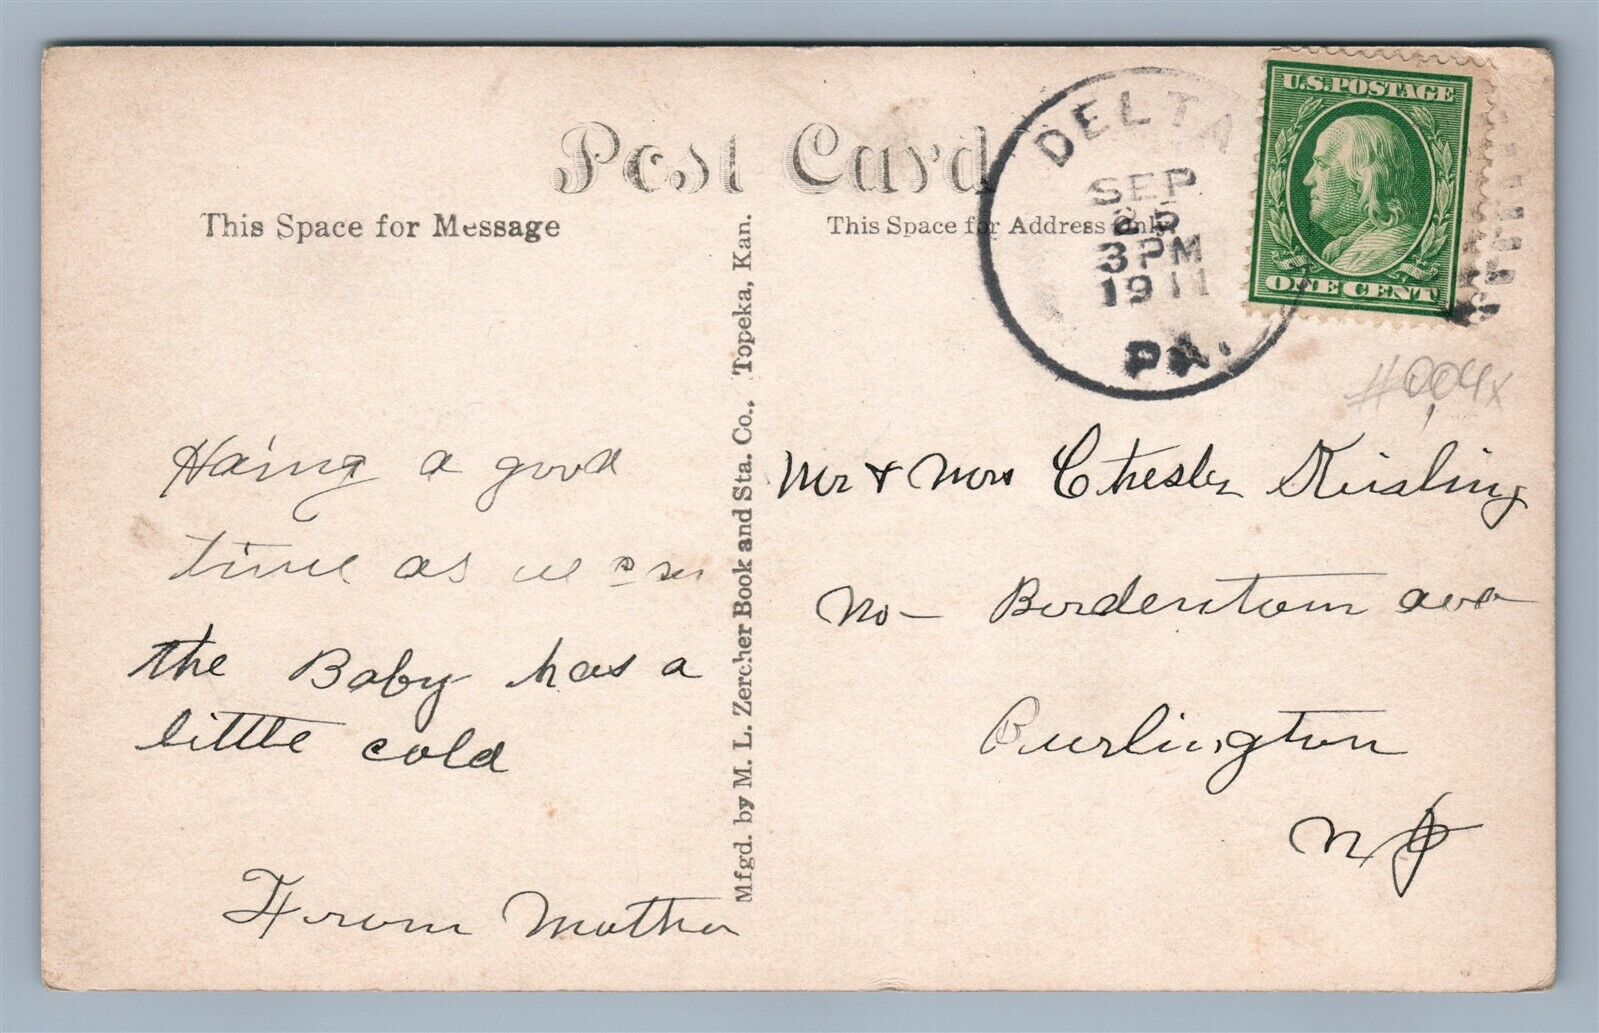 Post Card
This Space for Message
This Space for Address Only
DELTA
SEP
25
3 PM
1911
PA.
U.S. POSTAGE
ONE CENT
#004x
Haing a good
time as we
the Baby has a
little cold
From Mother
Mfgd. by M. L. Zercher Book and Sta. Co., Topeka, Kan.
Mr & Mrs Chester Kiesling
No- Bordentown ave
Burlington
N J